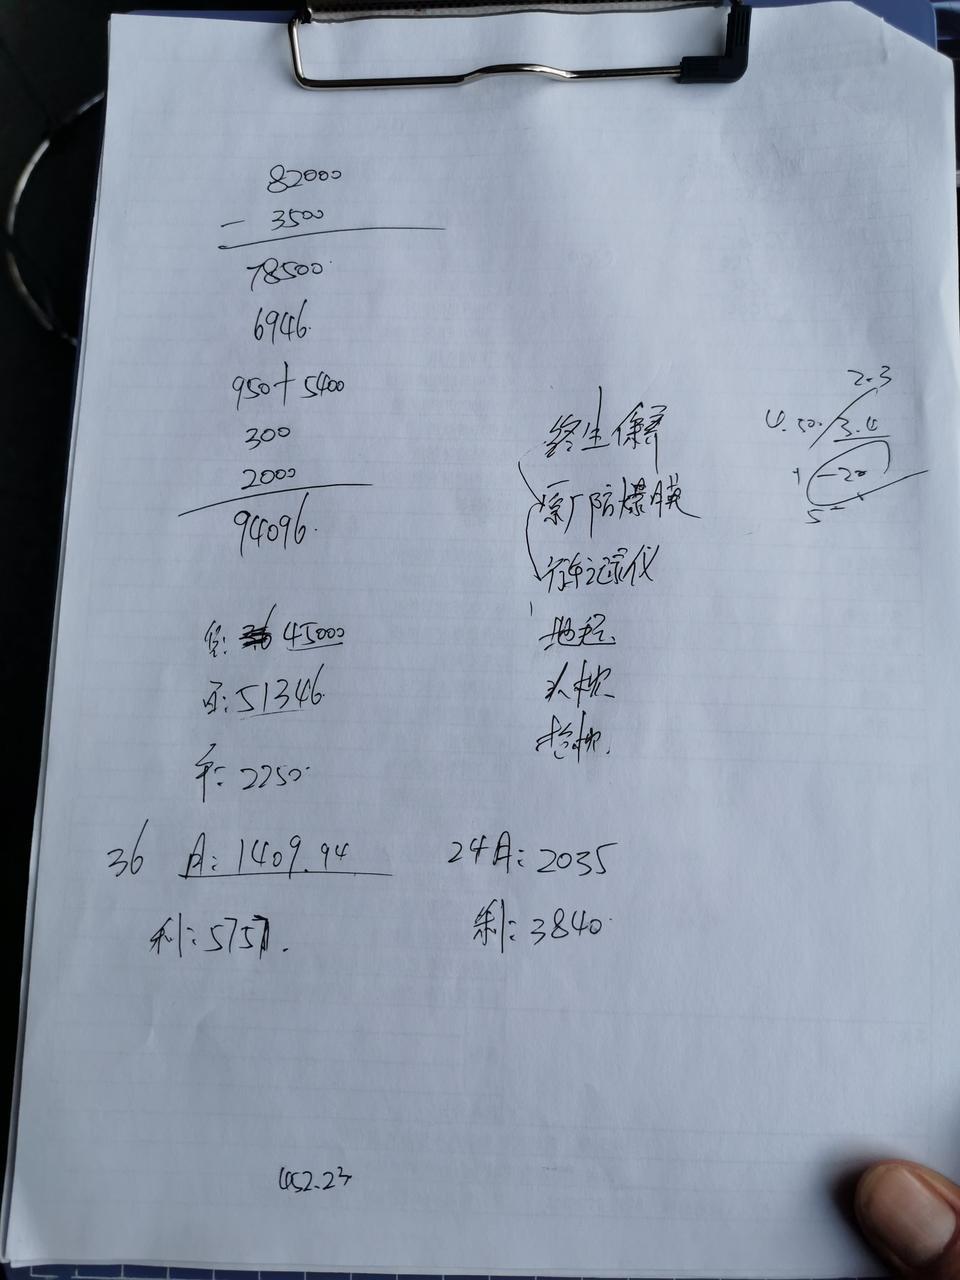 82000
- 3500
78500
6946
950+5400
300
2000
94096
贷: 45000
51346
2250
36 A: 1409.94
利: 5757
终生保养
原厂防爆膜
行车记录仪
地毯
头枕
抱枕
2.3
4.50. 3.4
-20
24A: 2035
利: 3840
452.23